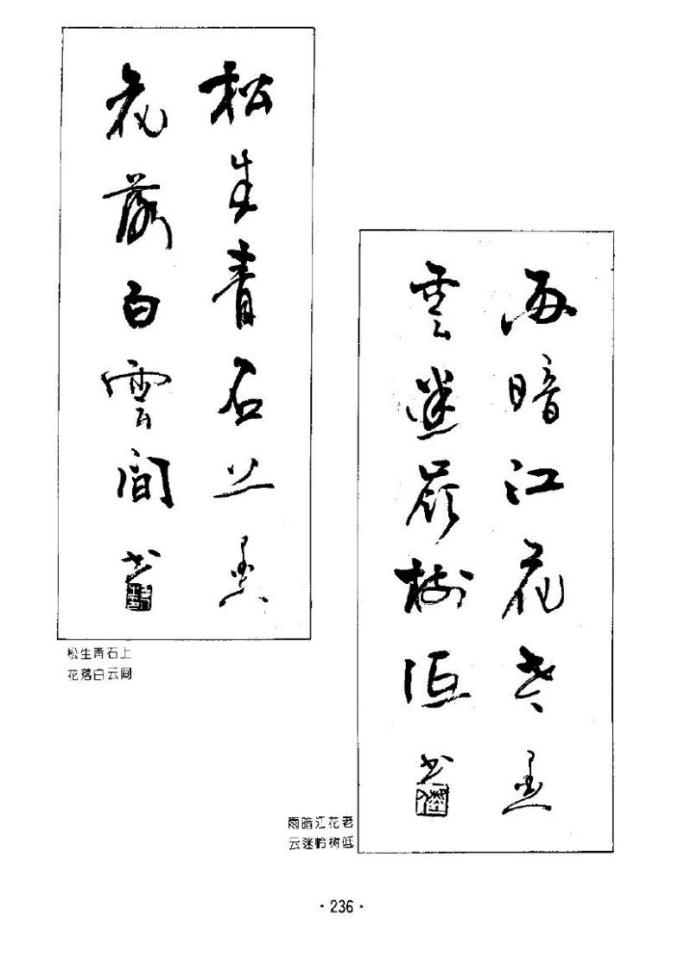 松生青石上
花落白雲间
書
松生青石上
花落白云间
雨暗江花老
雲迷嶺樹低
書
雨暗江花老
云迷岭树低
·236·